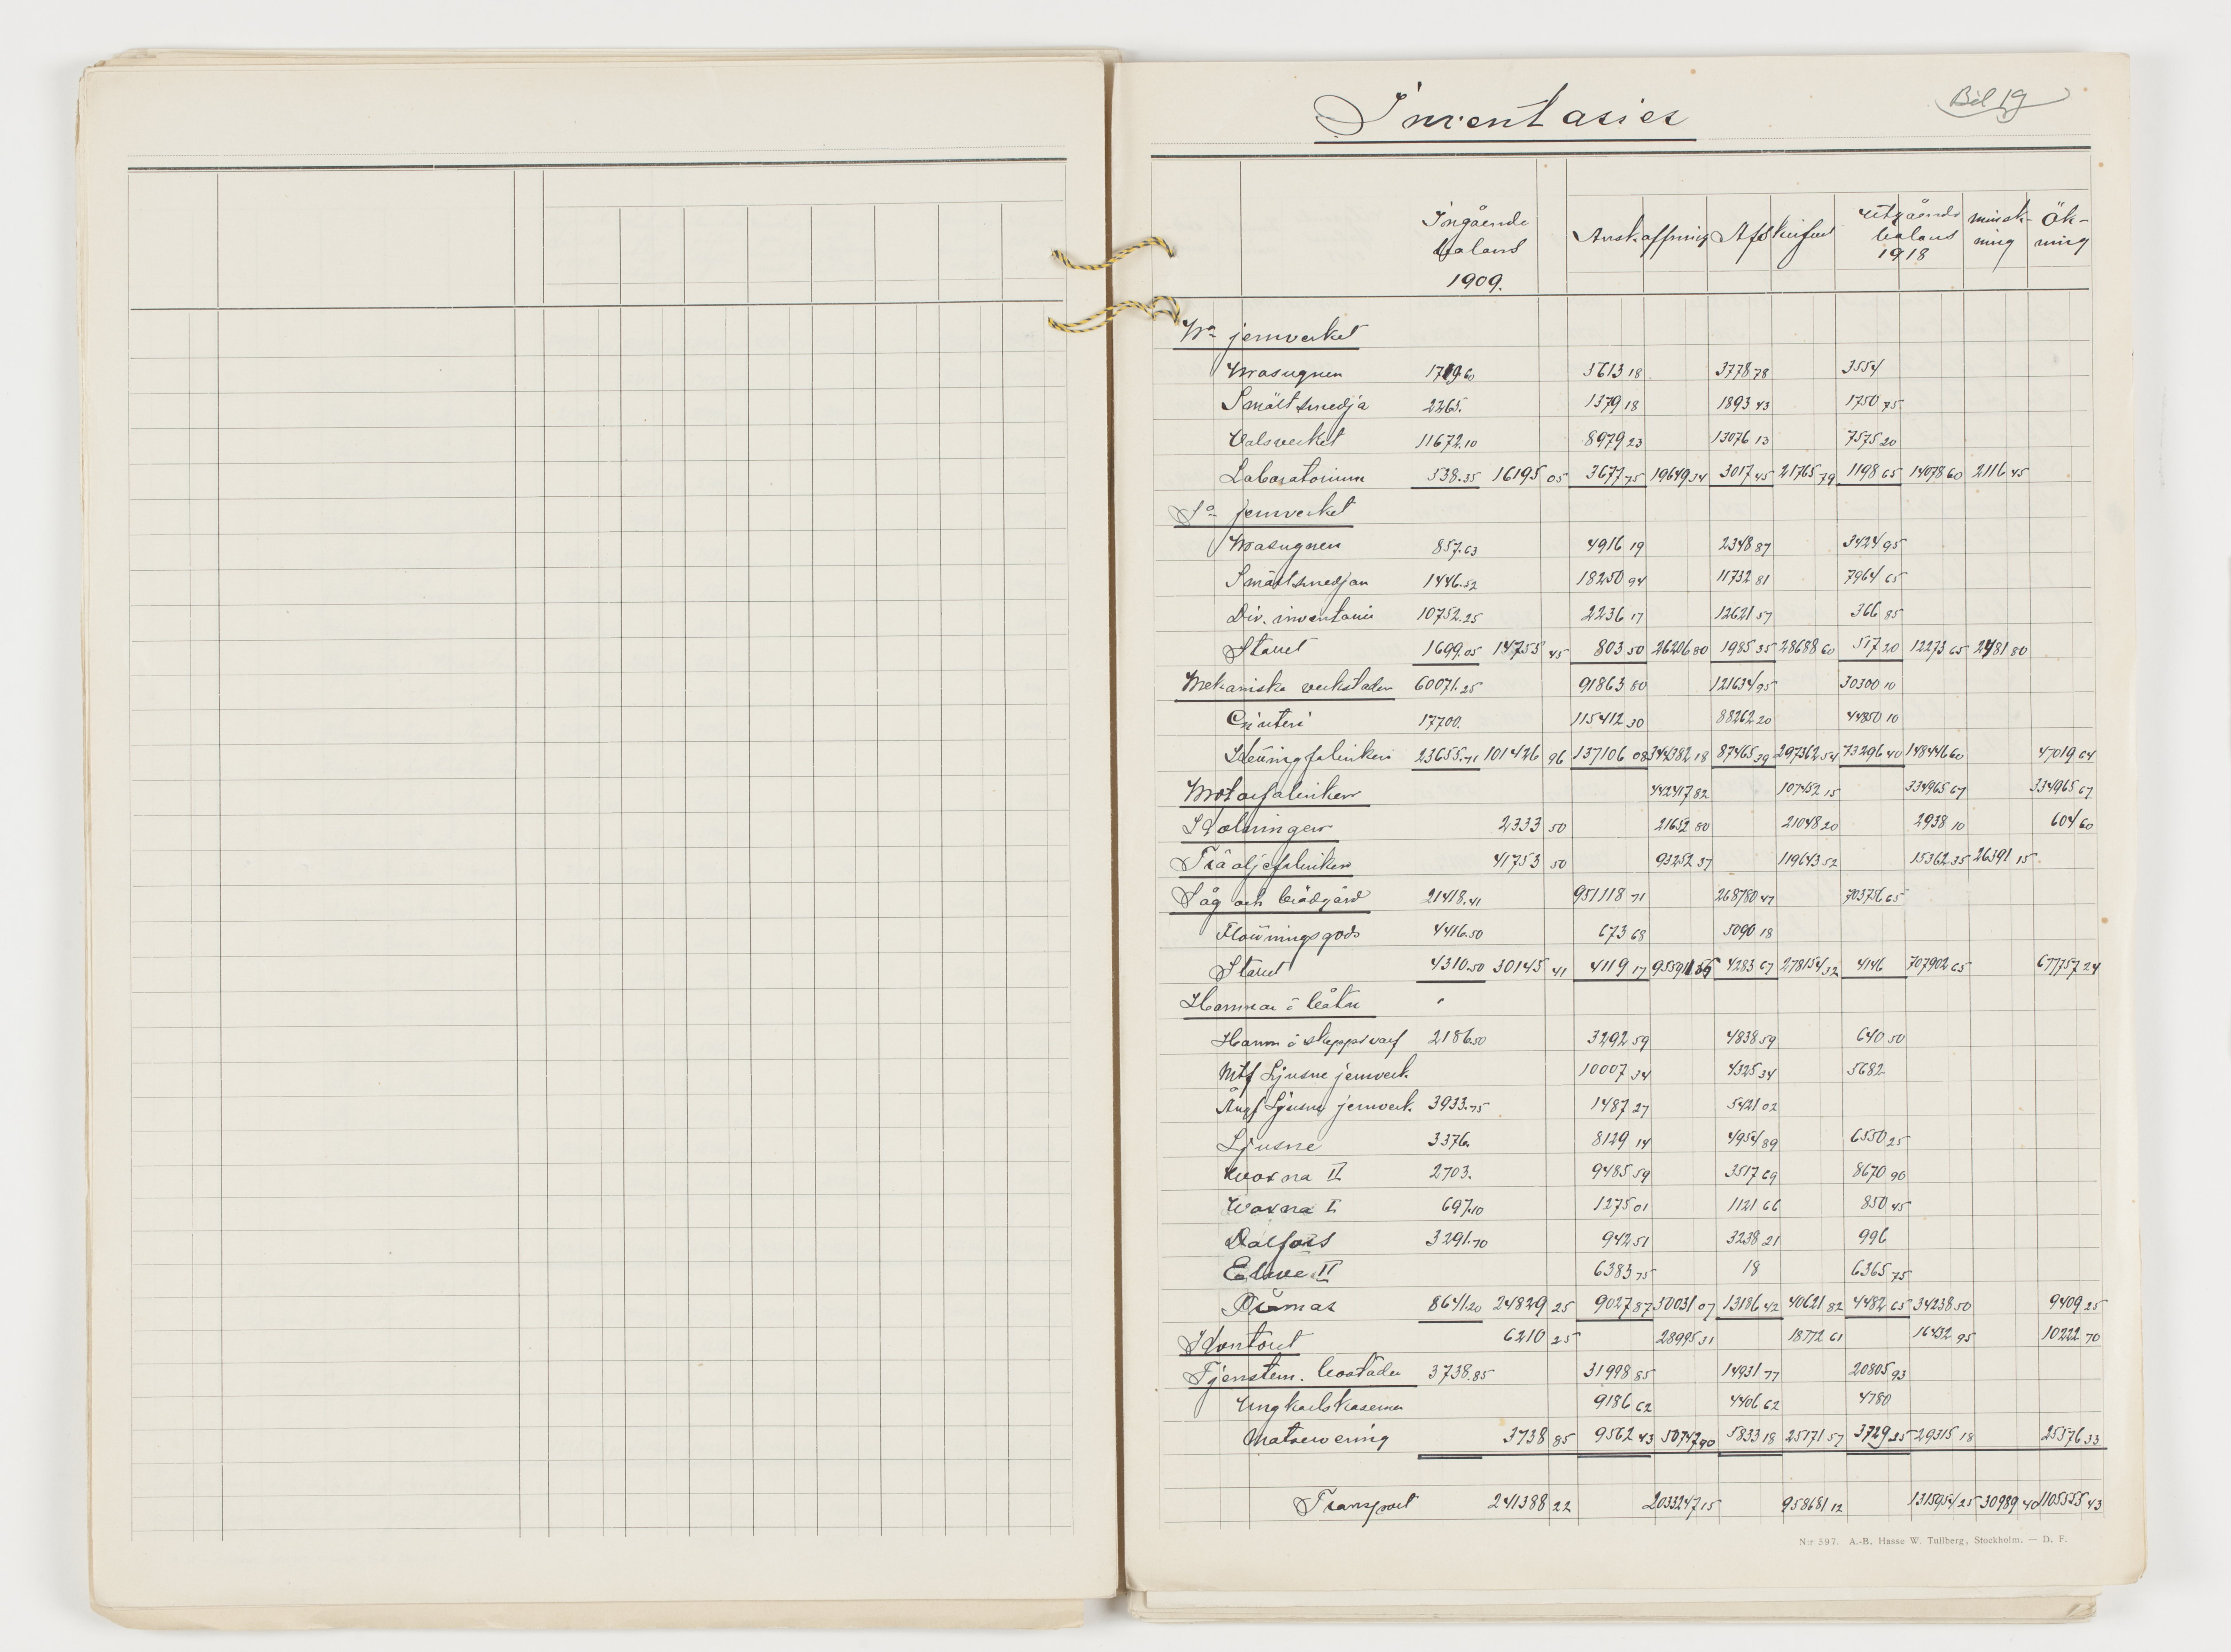 Inventarier
Bil 19
Ingående balans 1909. Anskaffning Afskrifvet Utgående balans 1918 minsk-ning Ök-ning
Wa jernverket
Masugnen 1719.60 5613 18 3778 78 3554
Smältsmedja 2265. 1379 18 1893 43 1750 75
Valsverket 11672.10 8979 23 13076 13 7575 20
Laboratorium 538.35 16195 05 3677 75 19649 34 3017 45 21765 79 1198 65 14078 60 2116 45
Sa jernverket
Masugnen 857.63 4916 19 2348 87 3424 95
Smältsmedjan 1446.52 18250 94 11732 81 7964 65
Div. inventarier 10752.25 2236 17 12621 57 366 85
Stallet 1699.05 14755 45 803 50 26206 80 1985 35 28688 60 517 20 12273 65 2481 80
Mekaniska verkstaden 60071.25 91863 80 121634 95 30300 10
Gjuteri 17700. 115412 30 88262 20 44850 10
Kettingfabriken 23655.71 101426 96 137106 08 344382 18 87465 39 297362 54 73296 40 148446 60 47019 64
Motorfabriken 442417 82 107452 15 334965 67 334965 67
Kolningen 2333 50 21652 80 21048 20 2938 10 604 60
Träoljefabriken 41753 50 93252 37 119643 52 15362 35 26391 15
Såg och brädgård 21418.41 951118 71 268780 47 703756 65
Flottningsgods 4416.50 673 68 5090 18
Stallet 4310.50 30145 41 4119 17 955911 56 4283 67 278154 32 4146 707902 65 677757 24
Hamnar o båtar
Hamn o skeppsvarf 2186.50 3292 59 4838 59 640 50
Mtf Ljusne jernverk 10007 34 4325 34 5682
Ångf Ljusne jernverk 3933.75 1487 27 5421 02
Ljusne 3376. 8129 14 4954 89 6550 25
Woxna II 2703. 9485 59 3517 69 8670 90
Woxna I 697.10 1275 01 1121 66 850 45
Dalfors 3291.70 942 51 3238 21 996
II 6383 75 18 6365 75
Pråmar 8641.20 24829 25 9027 87 50031 07 13186 42 40621 82 4482 65 34238 50 9409 25
Kontoret 6210 25 28995 31 18772 61 16432 95 10222 70
Tjenstem. bostäder 3738.85 31998 85 14931 77 20805 93
Ungkarlskasernen 9186 62 4406 62 4780
Matservering 3738 85 9562 43 50747 90 5833 18 25171 57 3729 25 29315 18 25576 33
Transport 241388 22 2033247 15 958681 12 1315954 25 30989 40 1105555 43
N:r 597. A.-B. Hasse W. Tullberg, Stockholm. — D. F.